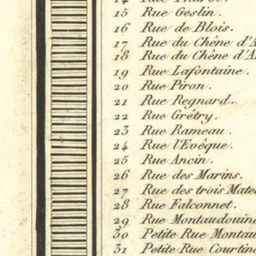 15 Rue Geslin.
16 Rue de Blois.
17 Rue du Chêne d'A
18 Rue du Chêne d'A
19 Rue Lafontaine.
20 Rue Piron.
21 Rue Regnard.
22 Rue Grétry.
23 Rue Rameau.
24 Rue l'Evêque.
25 Rue Ancin.
26 Rue des Marins.
27 Rue des trois Mate
28 Rue Falconnet.
29 Rue Montaudouine
30 Petite Rue Montau
31 Petite Rue Courtin